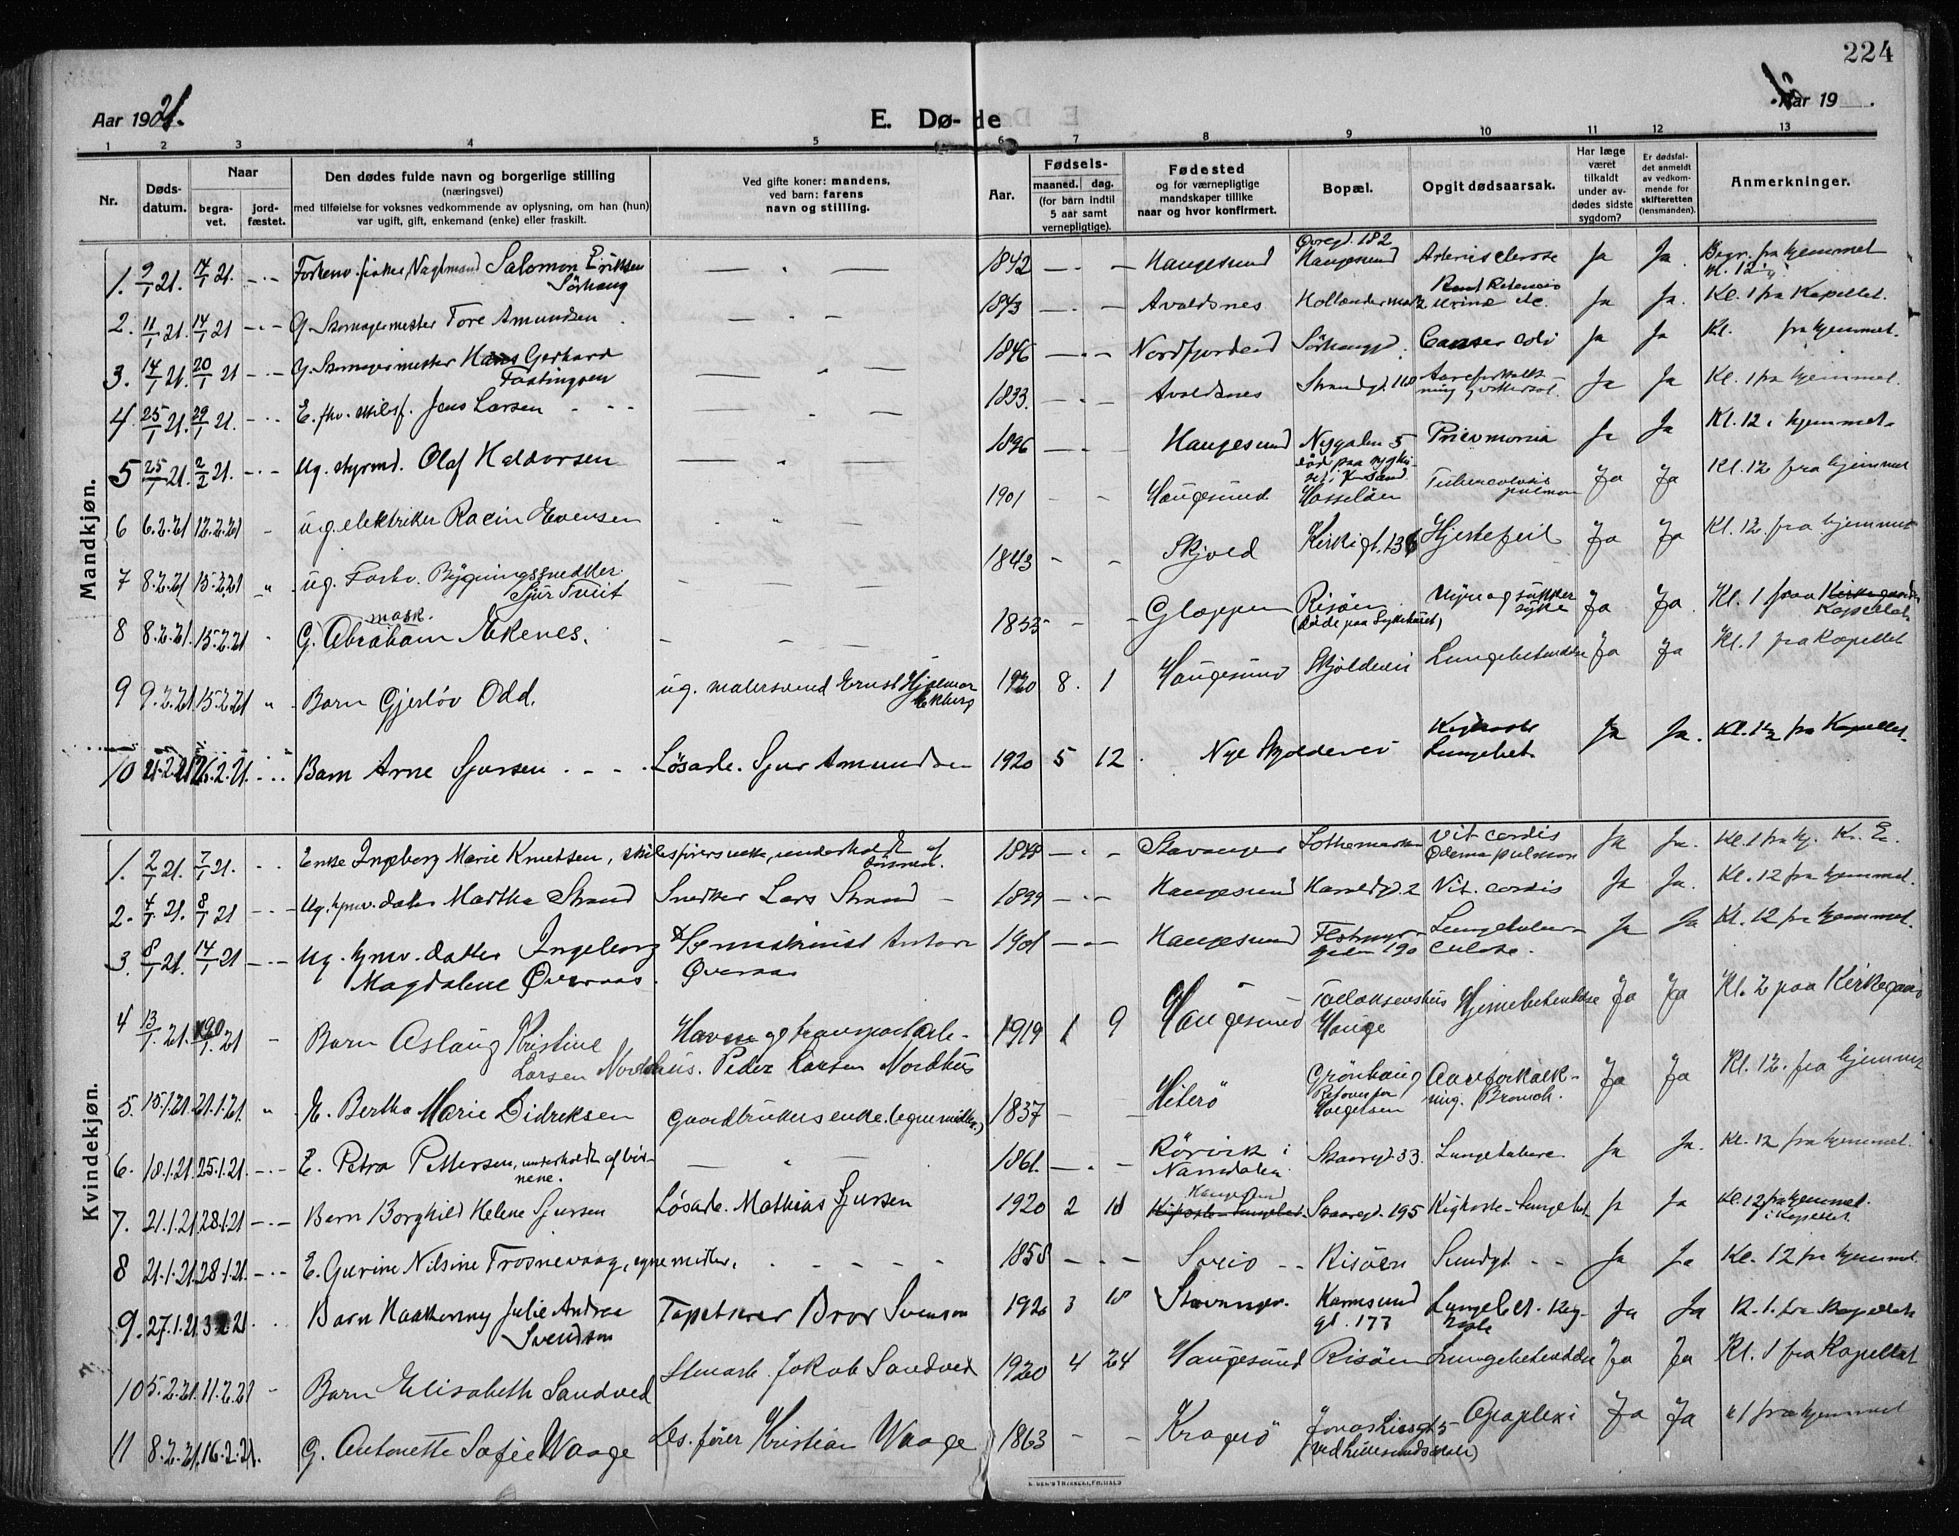 224
Aar 1921.
E. Dø- de
Aar 19
1 2 3 4 5 6 7 8 9 10 11 12 13
Nr.
Døds-
datum.
Naar
begra-
vet.
jord-
fæstet.
Den dødes fulde navn og borgerlige stilling
(næringsvei)
med tilføielse for voksnes vedkommende av oplysning, om han (hun)
var ugift, gift, enkemand (enke) eller fraskilt.
Ved gifte koner: mandens,
ved barn: farens
navn og stilling.
Aar.
Fødsels-
maaned. dag.
(for barn indtil
5 aar samt
vernepligtige).
Fødested
og for værnepligtige
mandskaper tillike
naar og hvor konfirmert.
Bopæl.
Opgit dødsaarsak.
Har læge
været
tilkaldt
under av-
dødes sidste
sygdom?
Er dødsfal-
det anmeldt
av vedkom-
mende for
skifteretten
(lensmanden).
Anmerkninger.
Mandkjøn.
1. 9/1 21. 14/1 21. Forhenv. fisker, Vagtmand Salomon Eriksen 1842 Haugesund Haugesund Ja Ja. Begr. fra hjemmet
Sörhaug Kl. 12
2. 11/1 21. 14/1 21 G. Skomagermester Tore Amundsen 1843 Avaldsnes Urinæ etc. Ja Ja. Kl. 1 fra Kapellet.
3. 14/1 21. 20/1 21 G. Skomagermester Hans Gerhard 1846 Nordfjordeid Cancer coli Ja Ja Kl. fra hjemmet.
Fastingsen
4. 25/1 21. 29/1 21. E. fhv. skibsf. Jens Larsen 1833. Avaldsnes Strandgt. 110 Ja Ja Kl. 1 fra hjemmet.
5 25/1 21. 2/2 21. Ug. styrmd. Olaf Haldorsen 1896 Haugesund Nygaten 5 Pneumonia Ja Ja Kl. 12 i hjemmet.
6 6.2.21 12.2.21 ug. elektriker Evensen 1901 Haugesund Hasselöen Tuberculosis Ja Ja Kl. 12 fra hjemmet
pulmon
7 8.2.21 15.2.21 " ug. Forhv. Bygningssnedker 1843 Skjold Kirkegt. Hjertefeil Ja Ja Kl. 12 fra hjemmet
Sjur Tveit
8 8.2.21. 15.2.21 mask.
G. Abraham Ekenes. 1855 Gloppen Risöen Nyre og sukker Ja Ja. Kl. 1 fra Kirkegaarden
(døde paa Sykehuset) syke Kapellet
9 9.2.21 15.2.21 " Barn Gjerlöv Odd. ug. malersvend Ernst Hjalmar 1920 8. 1 Haugesund Skjoldevei Lungebetændelse Ja Ja Kl. 1 fra Kapellet
Ekberg
10 21.2.21 26.2.21. Barn Arne Sjursen Løsarb. Sjur Amundsen 1920 5 12 Nye Skjoldevei Kighoste Ja Ja. Kl. 12 fra Kapellet.
Lungebet.
Kvindekjøn.
1. 2/1 21. 7/1 21. Enke Ingeborg Marie Knutsen, skibsførersenke, underholdt af 1848 Stavanger Vit. cordis Ja Ja. Kl. 1 fra hj.
Ødema pulmon
2. 4/1 21. 8/1 21 Ug. hjmv. datter Martha Strand Snedker Lars Strand 1899 Haugesund Haraldgt. 2 Vit. cordis Ja Ja. Kl. 12 fra hjemmet.
3. 8/1 21. 14/1 21 Ug. hjmv. datter Ingeborg Anton 1901 Haugesund Flotmyr- Lungetuber- Ja Ja Kl. 12 fra hjemmet.
Magdalene Överaas. Överaas gaten 190 culose.
4 13/1 21. 21 Barn Aslaug Kristine Havne og transportarb- 1919 1 9 Haugesund Hauge Hjernebetændelse Ja Ja Kl. 2 paa Kirkegaard
Larsen Nordhus. Peder Larsen Nordhus
5. 15.1.21. 21.1.21. " E. Bertha Marie Didriksen Gaardbrukers enke. (egne midler.) 1837 Hiterö Grönhaug Aareforkalk- Ja Ja Kl. 12. fra hjemmet
ning. Bronch.
6. 18.1.21. 25.1.21. E. Petra Pettersen, underholdt af bör- 1861. Rörvik i Skaaregt 33. Lungetuberc. Ja Ja. Kl. 12 fra hjemmet.
nene. Namdalen.
7. 21.1.21. 28.1.21 Barn Borghild Helene Sjursen Løsarb. Mathias Sjursen 1920 2 Haugesund
Kighoste - Lungebet. Skaaregt. 195 Kighoste - Lungebet Ja Ja Kl. 12 fra hjemmet.
i Kapellet
8 21.1.21. 28.1.21. E. Gurine Nilsine Trosnevaag, egne midler. 1858 Sveio Risöen Ja Ja Kl. 12 fra hjemmet
9. 27.1.21. 21. Barn Haakonny Julie Andrea Tapetserer Bror Svenson 1920 3 Stavanger. Karmsund Lungebet. Kig- Ja Ja Kl. 1. fra Kapellet
Svendson gt. 177 hoste
10 5.2.21. 11.2.21 Barn Elisabeth Sandved Stenarb. Jakob Sandved 1920 4 24 Haugesund Risöen Lungebetændelse Ja Ja Kl. 1 fra Kapellet
11 8.2.21. 16.2.21. G. Antonette Sofie Waage Ls. fører Kristian Waage 1863 Kragerö Apoplexi Ja Ja kl fra hjemmet